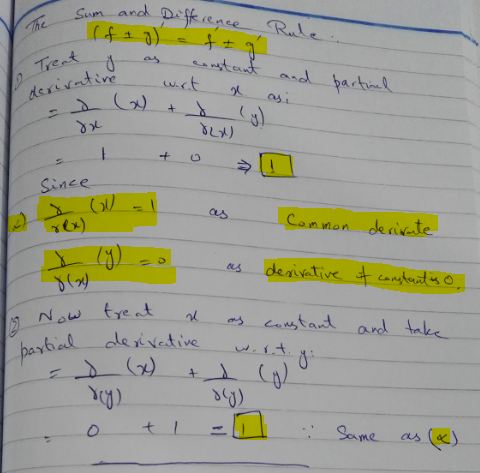 The Sum and Difference Rule.
(f ± g)' = f' ± g'
1) Treat y as constant and partial
derivative w.r.t x as;
= ∂/∂x (x) + ∂/∂(x) (y)
= 1 + 0 ⇒ 1
Since
∂/∂(x) (x) = 1 as Common derivate
∂/∂(x) (y) = 0 as derivative of constant is 0.
② Now treat x as constant and take
partial derivative w.r.t. y:
= ∂/∂(y) (x) + ∂/∂(y) (y)
= 0 + 1 = 1 ∵ Same as (α)